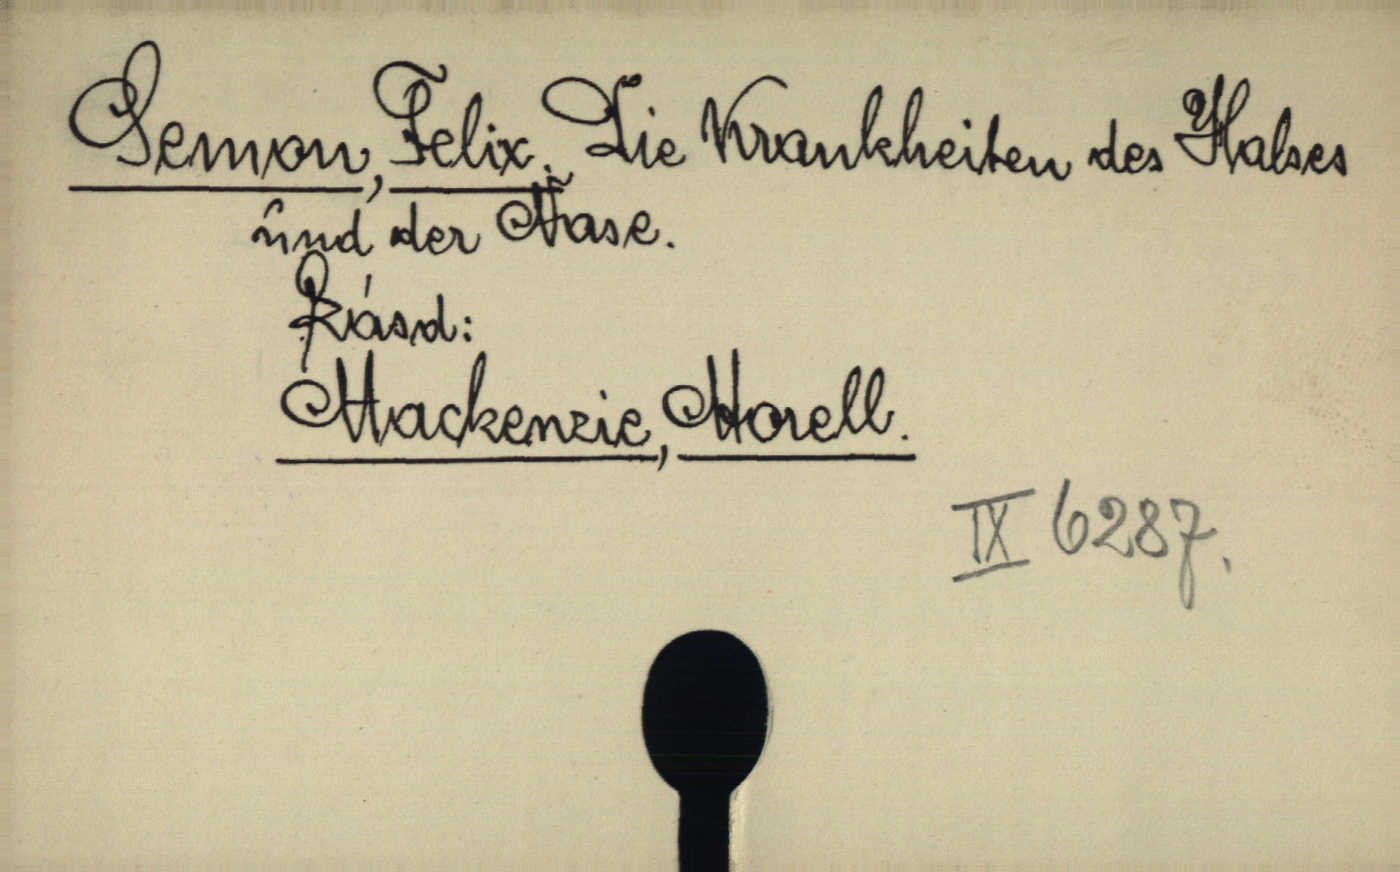 Semon, Felix. Die Krankheiten des Halses
und der Nase.
Lásd:
Mackenzie, Morell.
IX 6287.